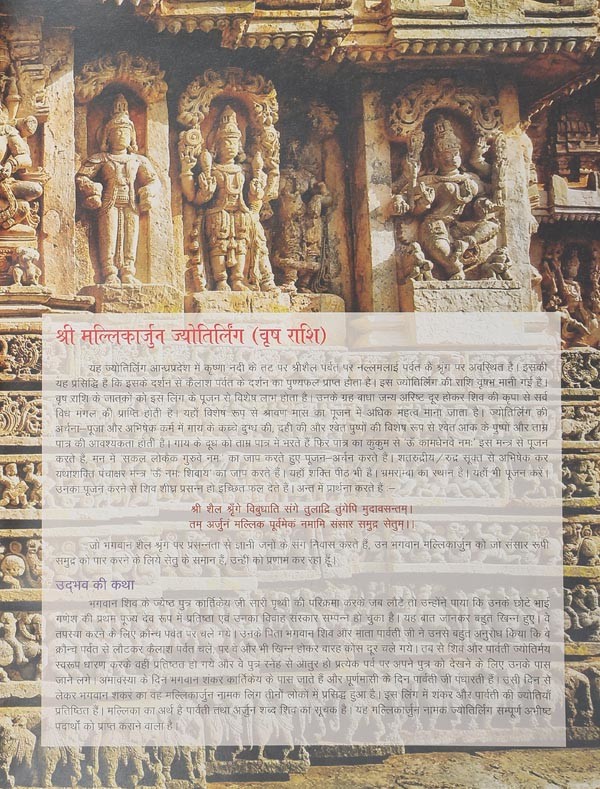 श्री मल्लिकार्जुन ज्योतिर्लिंग (वृष राशि)
यह ज्योतिर्लिंग आन्ध्रप्रदेश में कृष्णा नदी के तट पर श्रीशैल पर्वत पर नल्लमलाई पर्वत के श्रृंग पर अवस्थित है। इसकी
यह प्रसिद्धि है कि इसके दर्शन से कैलाश पर्वत के दर्शन का पुण्यफल प्राप्त होता है। इस ज्योतिर्लिंग की राशि वृषभ मानी गई है।
वृष राशि के जातकों को इस लिंग के पूजन से विशेष लाभ होता है। उनके ग्रह बाधा जन्य अरिष्ट दूर होकर शिव की कृपा से सर्व
विध मंगल की प्राप्ति होती है। यहाँ विशेष रूप से श्रावण मास का पूजन में अधिक महत्व माना जाता है। ज्योतिर्लिंग की
अर्चना–पूजा और अभिषेक कर्म में गाय के कच्चे दुग्ध की, दही की और श्वेत पुष्पों की विशेष रूप से श्वेत आक के पुष्पों और ताम्र
पात्र की आवश्यकता होती है। गाय के दूध को ताम्र पात्र में भरते हैं फिर पात्र का कुंकुम से 'ऊँ कामधेनवे नमः' इस मन्त्र से पूजन
करते हैं, मन में 'सकल लोकैक गुरुर्वै नमः' का जाप करते हुए पूजन–अर्चन करते है। शतरुद्रीय/रुद्र सूक्त से अभिषेक कर
यथाशक्ति पंचाक्षर मन्त्र 'ऊँ नमः शिवाय' का जाप करते हैं। यहाँ शक्ति पीठ भी है। भ्रमराम्बा का स्थान है। यहाँ भी पूजन करें।
उनका पूजन करने से शिव शीघ्र प्रसन्न हो इच्छित फल देते है। अन्त में प्रार्थना करते है –
श्री शैल श्रृंगे विबुधाति संगे तुलाद्रि तुंगेपि मुदावसन्तम्।
तम अर्जुनं मल्लिक पूर्वमेकं नमामि संसार समुद्र सेतुम्।।
जो भगवान शैल श्रृंग पर प्रसन्नता से ज्ञानी जनों के संग निवास करते हैं, उन भगवान मल्लिकार्जुन को जो संसार रूपी
समुद्र को पार करने के लिये सेतु के समान हैं, उन्हीं को प्रणाम कर रहा हूँ।
उद्भव की कथा
भगवान शिव के ज्येष्ठ पुत्र कार्तिकेय जी सारी पृथ्वी की परिक्रमा करके जब लौटे तो उन्होंने पाया कि उनके छोटे भाई
गणेश की प्रथम पूज्य देव रूप में प्रतिष्ठा एवं उनका विवाह संस्कार सम्पन्न हो चुका है। यह बात जानकर बहुत खिन्न हुए। वे
तपस्या करने के लिए क्रौन्च पर्वत पर चले गये। उनके पिता भगवान शिव और माता पार्वती जी ने उनसे बहुत अनुरोध किया कि वे
क्रौन्च पर्वत से लौटकर कैलाश पर्वत चलें, पर वे और भी खिन्न होकर बारह कोस दूर चले गये। तब से शिव और पार्वती ज्योतिर्मय
स्वरूप धारण करके वहीं प्रतिष्ठित हो गये और वे पुत्र स्नेह से आतुर हो प्रत्येक पर्व पर अपने पुत्र को देखने के लिए उनके पास
जाने लगे। अमावस्या के दिन भगवान शंकर कार्तिकेय के पास जाते हैं और पूर्णमासी के दिन पार्वती जी पधारती हैं। उसी दिन से
लेकर भगवान शंकर का वह मल्लिकार्जुन नामक लिंग तीनों लोकों में प्रसिद्ध हुआ है। इस लिंग में शंकर और पार्वती की ज्योतियाँ
प्रतिष्ठित हैं। मल्लिका का अर्थ है पार्वती तथा अर्जुन शब्द शिव का सूचक है। यह मल्लिकार्जुन नामक ज्योतिर्लिंग सम्पूर्ण अभीष्ट
पदार्थों को प्राप्त कराने वाला है।